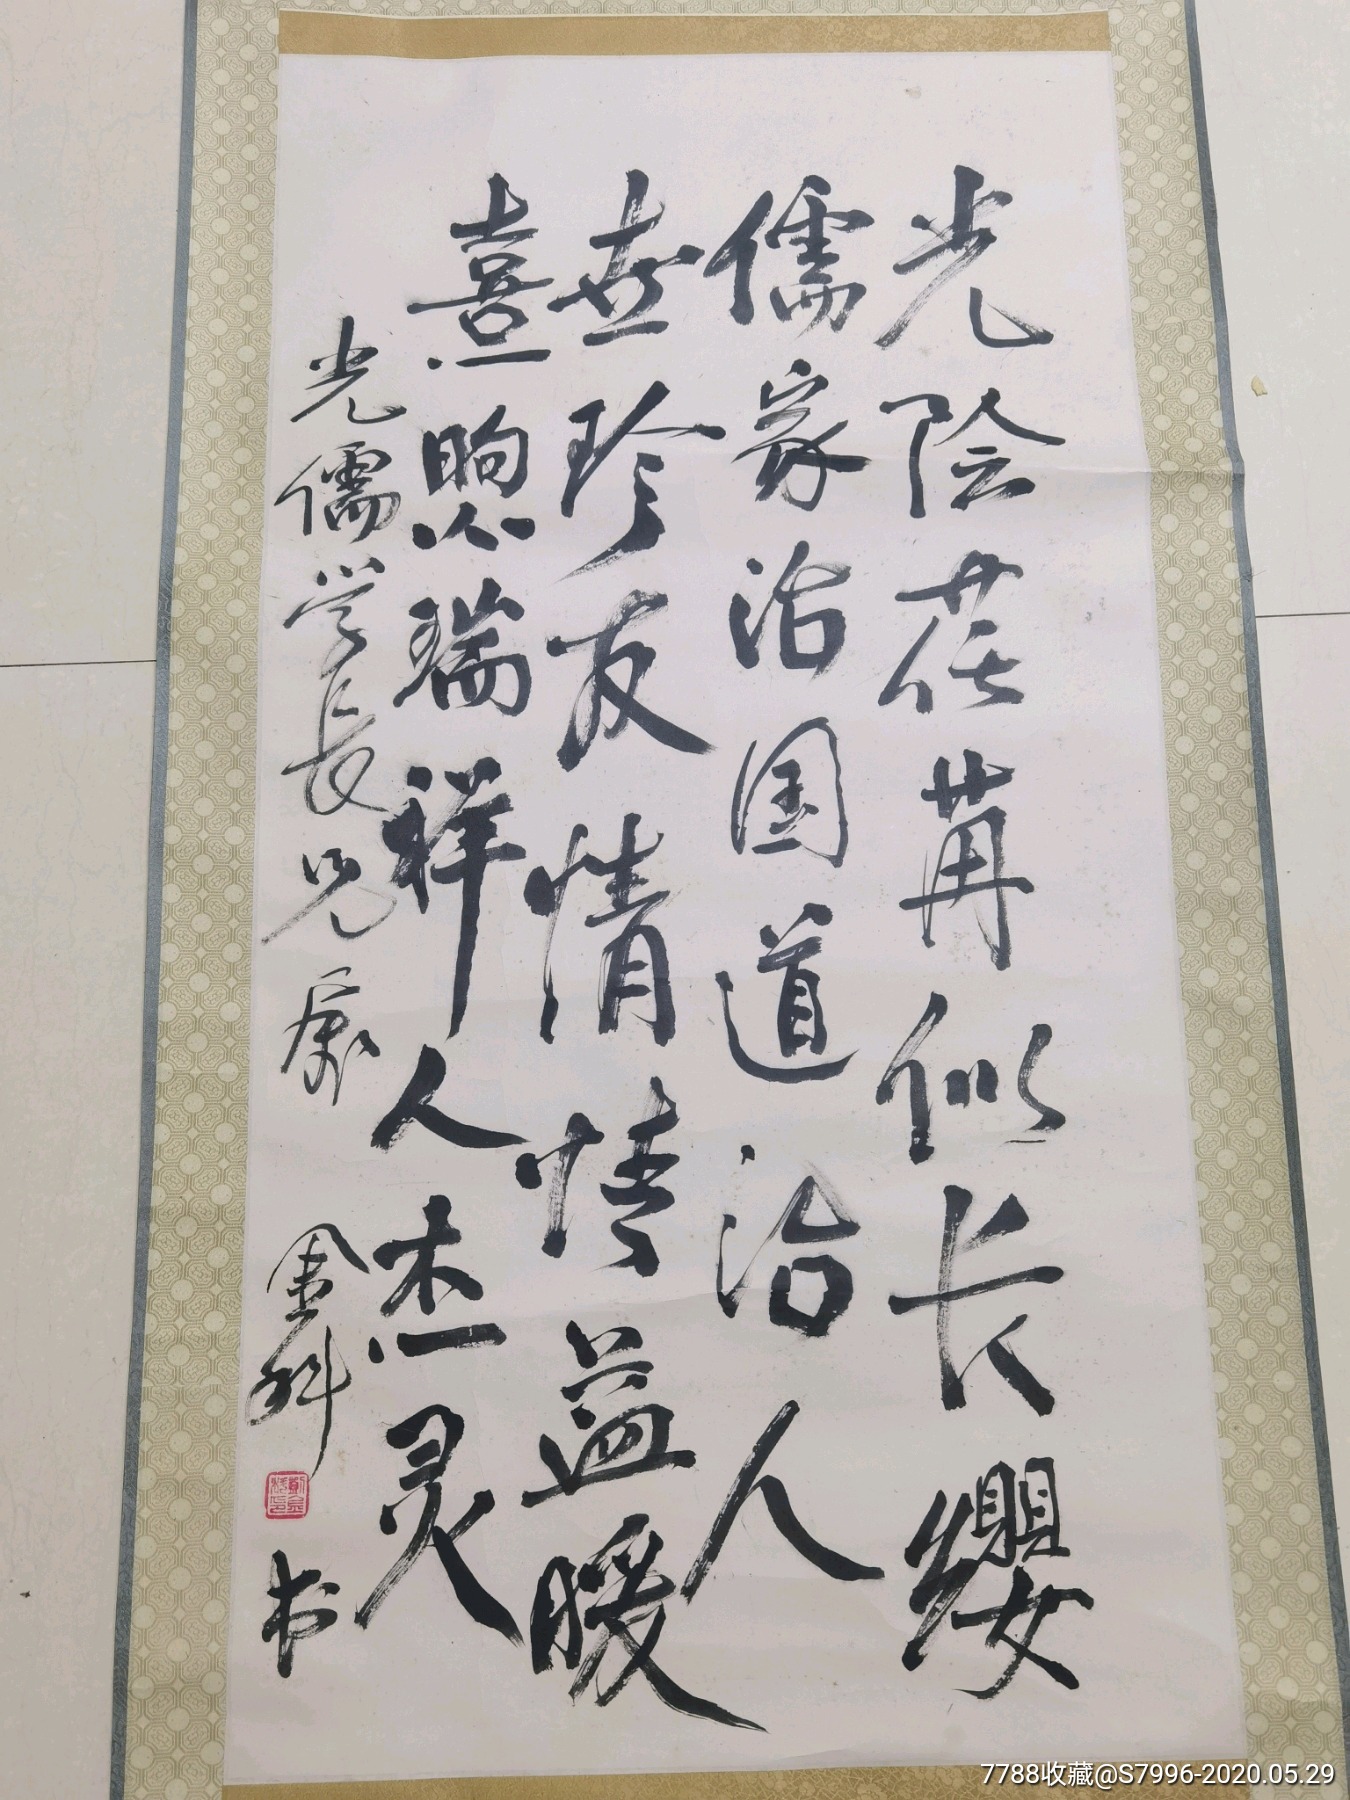 光阴荏苒似长缨
儒家治国道治人
世珍友情情益暖
熹煦瑞祥人杰灵
光儒学长兄属 金科 书
7788收藏@S7996-2020.05.29